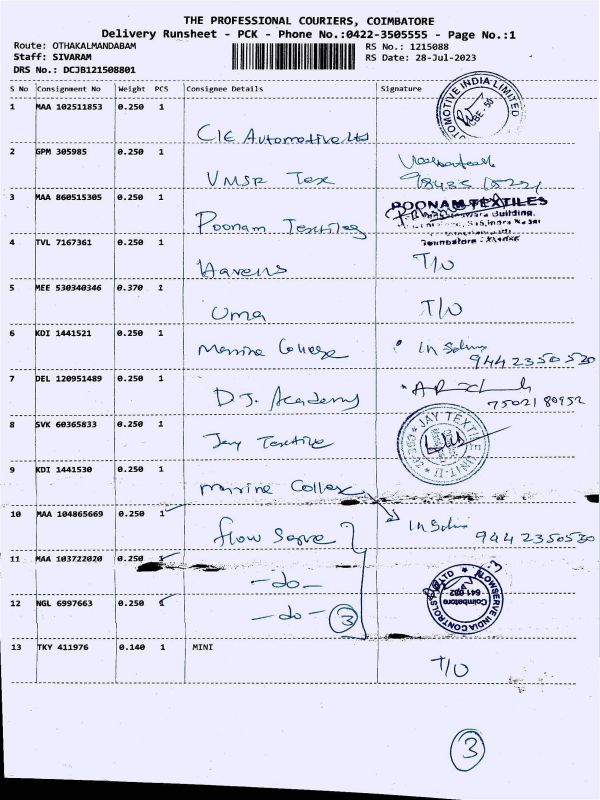 THE PROFESSIONAL COURIERS, COIMBATORE
Delivery Runsheet - PCK - Phone No.:0422-3505555 - Page No.:1
Route: OTHAKALMANDABAM RS No.: 1215088
Staff: SIVARAM RS Date: 28-Jul-2023
DRS No.: DCJB121508801
S No Consignment No Weight PCS Consignee Details Signature
1 MAA 102511853 0.250 1
CIE Automotive Ltd
AUTOMOTIVE INDIA LIMITED
2 GPM 305985 0.250 1
VMSR Tex
3 MAA 860515305 0.250 1
Poonam Textiles
POONAM TEXTILES
Building,
4 TVL 7167361 0.250 1
Havens T/O
5 MEE 530340346 0.370 1
Uma T/O
6 KDI 1441521 0.250 1
Marine College
9442350530
7 DEL 120951489 0.250 1
DJ. Academy
7502180952
8 SVK 60365833 0.250 1
Jay Textile
JAY TEXTILE UNIT-II
9 KDI 1441530 0.250 1
Marine College
10 MAA 104865669 0.250 1
flow Serve
9442350530
11 MAA 103722020 0.250 1
-do-
12 NGL 6997663 0.250 1
-do- 3
FLOWSERVE INDIA CONTROLS LTD
Coimbatore
13 TKY 411976 0.140 1 MINI
T/O
3